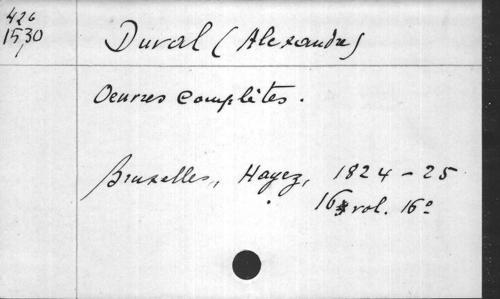 426
1530
1
Duval (Alexandre)
Oeuvres complètes.
Bruxelles, Hayez, 1824-25
16 vol. 16°